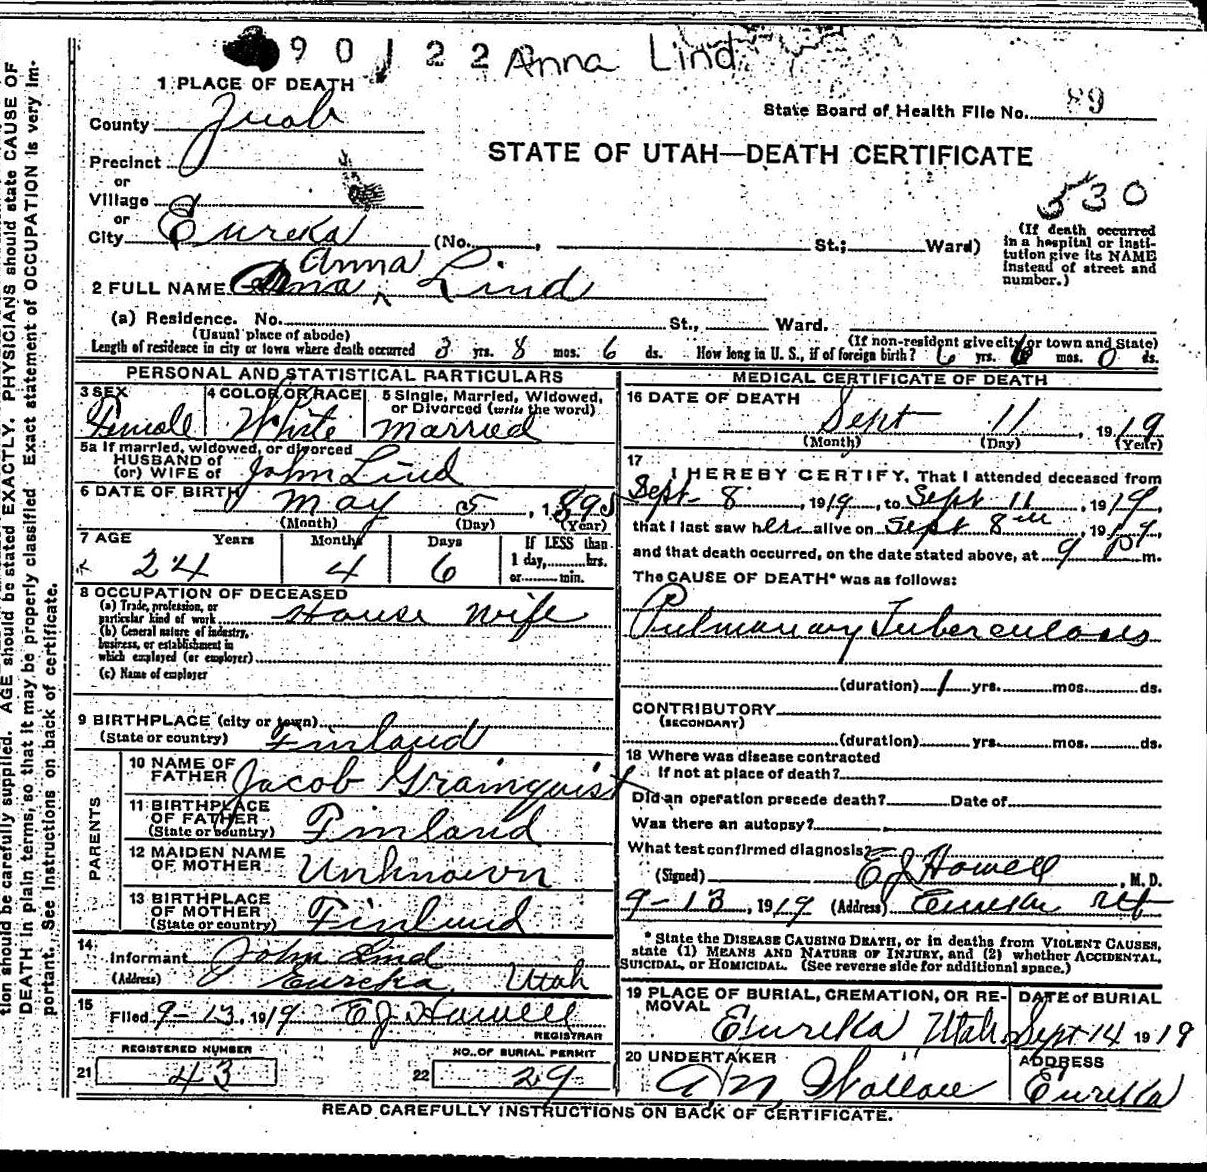 90122 Anna Lind
1 PLACE OF DEATH
State Board of Health File No. 89
County Juab
STATE OF UTAH—DEATH CERTIFICATE
Precinct
or
Village
530
or
City Eureka (No. , St.; Ward)
(If death occurred in a hospital or institution give its NAME instead of street and number.)
Anna
2 FULL NAME Lind
(a) Residence. No. St., Ward.
(Usual place of abode) (If non-resident give city or town and State)
Length of residence in city or town where death occurred 3 yrs. 8 mos. 6 ds. How long in U. S., if of foreign birth? 6 yrs. 6 mos. 0 ds.
PERSONAL AND STATISTICAL PARTICULARS
3 SEX Female
4 COLOR OR RACE White
5 Single, Married, Widowed, or Divorced (write the word) Married
5a If married, widowed, or divorced
HUSBAND of
(or) WIFE of John Lind
6 DATE OF BIRTH May 5, 1895
(Month) (Day) (Year)
7 AGE Years Months Days If LESS than
24 4 6 1 day, hrs.
or min.
8 OCCUPATION OF DECEASED
(a) Trade, profession, or particular kind of work House wife
(b) General nature of industry, business, or establishment in which employed (or employer)
(c) Name of employer
9 BIRTHPLACE (city or town)
(State or country) Finland
PARENTS
10 NAME OF FATHER Jacob Grainquist
11 BIRTHPLACE OF FATHER
(State or country) Finland
12 MAIDEN NAME OF MOTHER Unknown
13 BIRTHPLACE OF MOTHER
(State or country) Finland
14 Informant John Lind
(Address) Eureka, Utah
15 Filed 9-13, 1919 E J Howell
REGISTRAR
REGISTERED NUMBER NO. OF BURIAL PERMIT
21 43 22 29
MEDICAL CERTIFICATE OF DEATH
16 DATE OF DEATH
Sept 11, 1919
(Month) (Day) (Year)
17 I HEREBY CERTIFY, That I attended deceased from
Sept 8, 1919, to Sept 11, 1919
that I last saw her alive on Sept 8th, 1919
and that death occurred, on the date stated above, at 9 P m.
The CAUSE OF DEATH* was as follows:
Pulmanary Tuberculosis
(duration) 1 yrs. mos. ds.
CONTRIBUTORY
(SECONDARY)
(duration) yrs. mos. ds.
18 Where was disease contracted
If not at place of death?
Did an operation precede death? Date of
Was there an autopsy?
What test confirmed diagnosis?
(Signed) E J Howell, M. D.
9-13, 1919 (Address) Eureka Ut
* State the DISEASE CAUSING DEATH, or in deaths from VIOLENT CAUSES,
state (1) MEANS AND NATURE OF INJURY, and (2) whether ACCIDENTAL,
SUICIDAL, or HOMICIDAL. (See reverse side for additional space.)
19 PLACE OF BURIAL, CREMATION, OR REMOVAL DATE of BURIAL
Eureka Utah Sept 14 1919
20 UNDERTAKER ADDRESS
A N Wallace Eureka
READ CAREFULLY INSTRUCTIONS ON BACK OF CERTIFICATE.
tion should be carefully supplied. AGE should be stated EXACTLY. PHYSICIANS should state CAUSE OF
DEATH in plain terms, so that it may be properly classified. Exact statement of OCCUPATION is very im-
portant. See instructions on back of certificate.